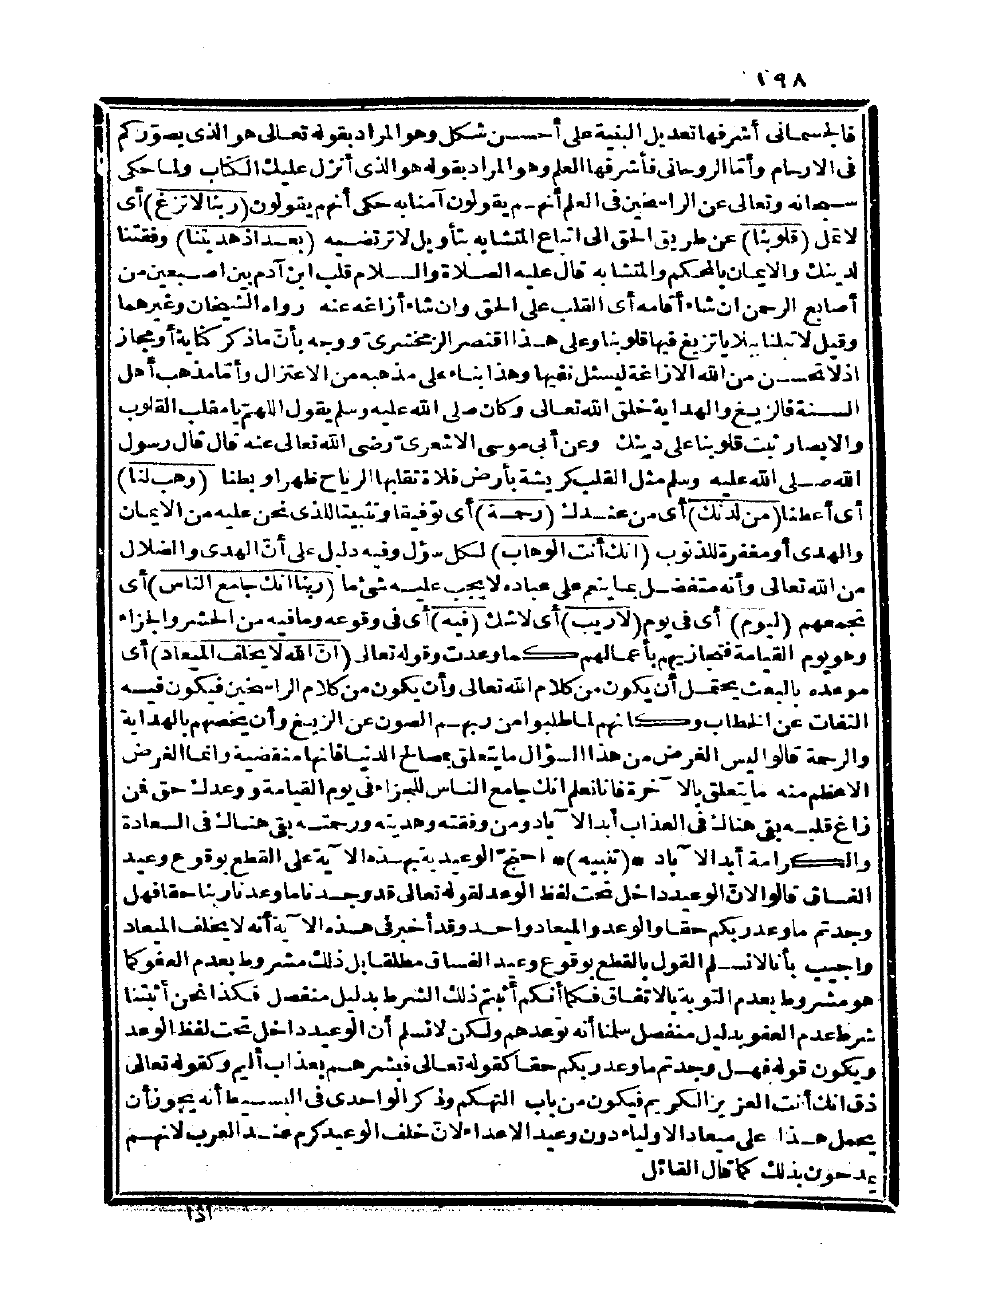 ١٩٨
فالجسمانى أشرفها تعديل البنية على أحسن شكل وهو المراد بقوله تعالى هو الذى يصوّركم
فى الارحام وأمّا الروحانى فأشرفها العلم وهو المراد بقوله هو الذى أنزل عليك الكتاب ولما حكى
سبحانه وتعالى عن الراسخين فى العلم أنهم يقولون آمنا به حكى أنهم يقولون (ربنا لا تزغ) أى
لا تمل (قلوبنا) عن طريق الحق الى اتباع المتشابه بتأويل لا ترتضيه (بعد اذ هديتنا) وفقتنا
لدينك والايمان بالمحكم والمتشابه قال عليه الصلاة والسلام قلب ابن آدم بين اصبعين من
أصابع الرحمن ان شاء أقامه أى القلب على الحق وان شاء أزاغه عنه رواه الشيخان وغيرهما
وقيل لا تبلنا ببلايا تزيغ فيها قلوبنا وعلى هذا اقتصر الزمخشرىّ ووجه بأنّ ما ذكر كناية أو مجاز
اذ لا تحسن من الله الازاغة ليسئل نفيها وهذا بناء على مذهبه من الاعتزال وأمّا مذهب أهل
السنة فالزيغ والهداية خلق الله تعالى وكان صلى الله عليه وسلم يقول اللهمّ يا مقلب القلوب
والابصار ثبت قلوبنا على دينك وعن أبى موسى الاشعرىّ رضى الله تعالى عنه قال قال رسول
الله صلى الله عليه وسلم مثل القلب كريشة بأرض فلاة تقلبها الرياح ظهرا وبطنا (وهب لنا)
أى أعطنا (من لدنك) أى من عندك (رحمة) أى توفيقا وتثبيتا للذى نحن عليه من الايمان
والهدى أو مغفرة للذنوب (انك أنت الوهاب) لكل سؤل وفيه دليل على أنّ الهدى والضلال
من الله تعالى وأنه متفضل بما ينعم على عباده لا يجب عليه شئ ما (ربنا انك جامع الناس) أى
تجمعهم (ليوم) أى فى يوم (لا ريب) أى لا شك (فيه) أى فى وقوعه وما فيه من الحشر والجزاء
وهو يوم القيامة فتجازيهم بأعمالهم كما وعدت وقوله تعالى (انّ الله لا يخلف الميعاد) أى
موعده بالبعث يحتمل أن يكون من كلام الله تعالى وأن يكون من كلام الراسخين فيكون فيه
التفات عن الخطاب وكانهم لما طلبوا من ربهم الصون عن الزيغ وأن يخصهم بالهداية
والرحمة قالوا ليس الغرض من هذا السؤال ما يتعلق بمصالح الدنيا فانها منقضية وانما الغرض
الاعظم منه ما يتعلق بالآخرة فانا نعلم انك جامع الناس للجزاء فى يوم القيامة ووعدك حق فمن
زاغ قلبه بقى هناك فى العذاب أبد الآباد ومن وفقته وهديته ورحمته بقى هناك فى السعادة
والكرامة أبد الآباد *(تنبيه)* احتجّ الوعيدية بهذه الآية على القطع بوقوع وعيد
الفساق قالوا لانّ الوعيد داخل تحت لفظ الوعد لقوله تعالى قد وجدنا ما وعدنا ربنا حقا فهل
وجدتم ما وعد ربكم حقا والوعد والميعاد واحد وقد أخبر فى هذه الآية أنه لا يخلف الميعاد
وأجيب بأنا لا نسلم القول بالقطع بوقوع وعيد الفساق مطلقا بل ذلك مشروط بعدم العفو كما
هو مشروط بعدم التوبة بالاتفاق فكما أنكم أثبتم ذلك الشرط بدليل منفصل فكذا نحن أثبتنا
شرط عدم العفو بدليل منفصل سلمنا أنه توعدهم ولكن لا نسلم أن الوعيد داخل تحت لفظ الوعد
ويكون قوله فهل وجدتم ما وعد ربكم حقا كقوله تعالى فبشرهم بعذاب أليم وكقوله تعالى
ذق انك أنت العزيز الكريم فيكون من باب التهكم وذكر الواحدى فى البسيط أنه يجوز أن
يحمل هذا على ميعاد الاولياء دون وعيد الاعداء لانّ خلف الوعيد كرم عند العرب لانهم
يمدحون بذلك كما قال القائل
اذا